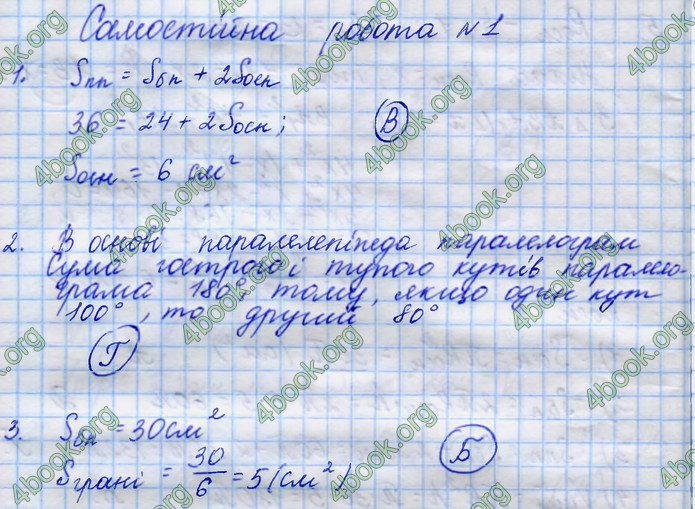 Самостійна робота №1
1. Sпп = Sбп + 2Sосн
36 = 24 + 2Sосн; В
Sосн = 6 см²
2. В основі паралелепіпеда паралелограм
Сума гострого і тупого кутів парале­ло-
грама 180° тому, якщо один кут
100°, то другий 80°
Г
3. Sбп = 30см²
Sграні = 30/6 = 5 (см²) Б
4book.org